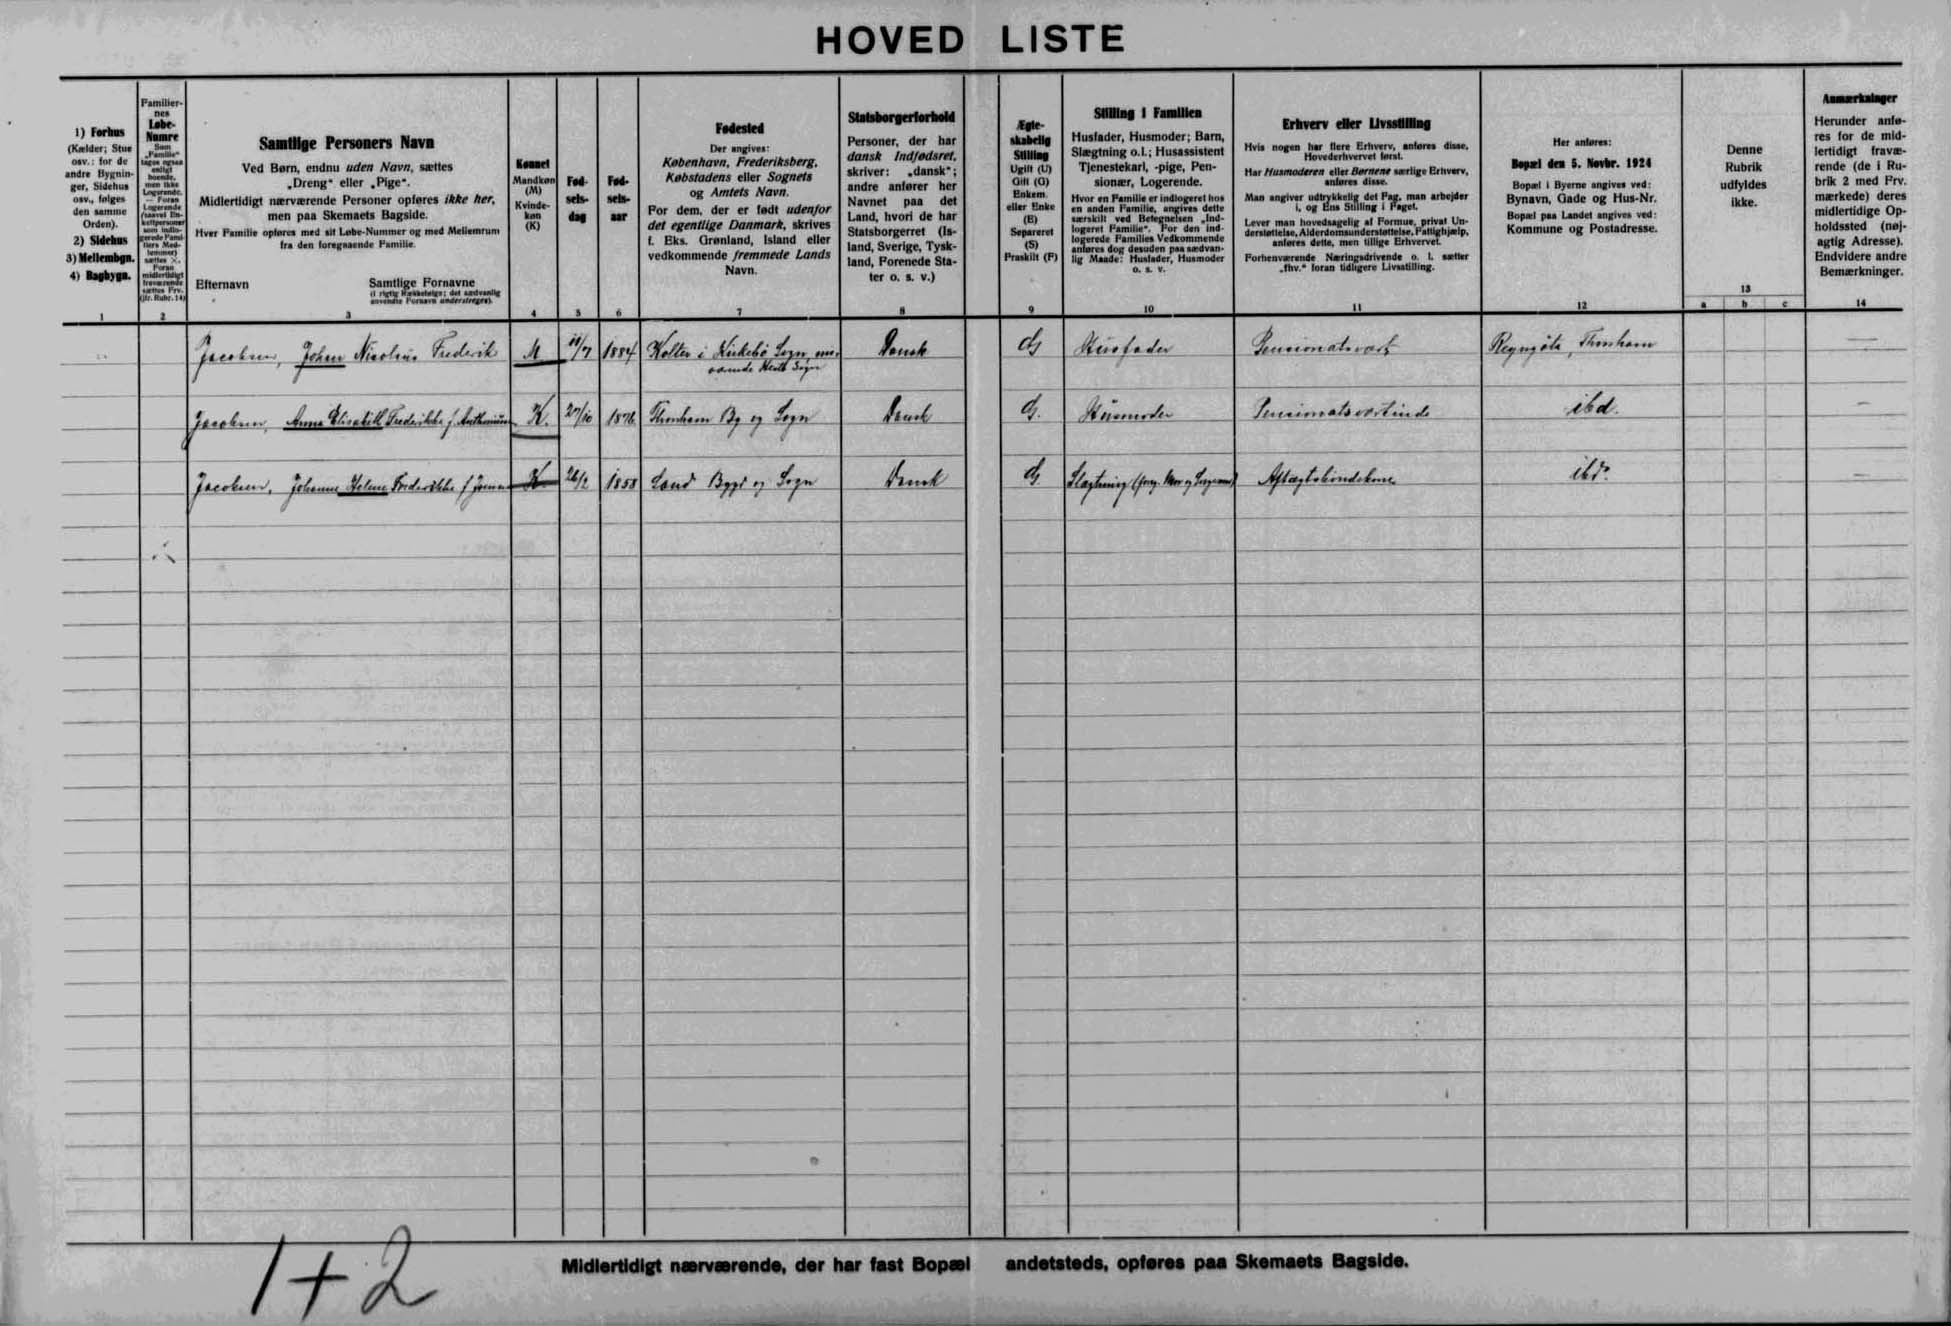 HOVED LISTE
1) Forhus
(Kælder; Stue
osv.: for de
andre Bygnin-
ger, Sidehus
osv., følges
den samme
Orden).
2) Sidehus
3) Mellembgn.
4) Bagbygn.
1
Familier-
nes
Løbe-
Numre
Som
„Familie"
tages ogsaa
enligt
boende,
men ikke
Logerende.
— Foran
Logerende
(saavel En-
keltpersoner
som indlo-
gerede Fami-
liers Med-
lemmer)
sættes ×.
Foran
midlertidigt
fraværende
sættes Frv.
(jfr. Rubr. 14)
2
Samtlige Personers Navn
Ved Børn, endnu uden Navn, sættes
„Dreng" eller „Pige".
Midlertidigt nærværende Personer opføres ikke her,
men paa Skemaets Bagside.
Hver Familie opføres med sit Løbe-Nummer og med Mellemrum
fra den foregaaende Familie.
Efternavn
Samtlige Fornavne
(i rigtig Rækkefølge; det sædvanlig
anvendte Fornavn understreges).
3
Kønnet
Mandkøn
(M)
Kvinde-
køn
(K)
4
Fød-
sels-
dag
5
Fød-
sels-
aar
6
Fødested
Der angives:
København, Frederiksberg,
Købstadens eller Sognets
og Amtets Navn.
For dem, der er født udenfor
det egentlige Danmark, skrives
f. Eks. Grønland, Island eller
vedkommende fremmede Lands
Navn.
7
Statsborgerforhold
Personer, der har
dansk Indfødsret,
skriver: „dansk";
andre anfører her
Navnet paa det
Land, hvori de har
Statsborgerret (Is-
land, Sverige, Tysk-
land, Forenede Sta-
ter o. s. v.)
8
Ægte-
skabelig
Stilling
Ugift (U)
Gift (G)
Enkem.
eller Enke
(E)
Separeret
(S)
Fraskilt (F)
9
Stilling i Familien
Husfader, Husmoder; Barn,
Slægtning o.l.; Husassistent
Tjenestekarl, -pige, Pen-
sionær, Logerende.
Hvor en Familie er indlogeret hos
en anden Familie, angives dette
særskilt ved Betegnelsen „Ind-
logeret Familie". For den ind-
logerede Families Vedkommende
anføres dog desuden paa sædvan-
lig Maade: Husfader, Husmoder
o. s. v.
10
Erhverv eller Livsstilling
Hvis nogen har flere Erhverv, anføres disse,
Hovederhvervet først.
Har Husmoderen eller Børnene særlige Erhverv,
anføres disse.
Man angiver udtrykkelig det Fag, man arbejder
i, og Ens Stilling i Faget.
Lever man hovedsagelig af Formue, privat Un-
derstøttelse, Alderdomsunderstøttelse, Fattighjælp,
anføres dette, men tillige Erhvervet.
Forhenværende Næringsdrivende o. l. sætter
„fhv." foran tidligere Livsstilling.
11
Her anføres:
Bopæl den 5. Novbr. 1924
Bopæl i Byerne angives ved:
Bynavn, Gade og Hus-Nr.
Bopæl paa Landet angives ved:
Kommune og Postadresse.
12
Denne
Rubrik
udfyldes
ikke.
13
a b c
Anmærkninger
Herunder anfø-
res for de mid-
lertidigt fravæ-
rende (de i Ru-
brik 2 med Frv.
mærkede) deres
midlertidige Op-
holdssted (nøj-
agtig Adresse).
Endvidere andre
Bemærkninger.
14
Jacobsen, Johan Nicolaus Frederik M /7 1884 Kolter i Kirkebø Sogn, nu- Dansk G Husfader Pensionatsvært Reyngøta, Thorshavn —
værende Hests Sogn
Jacobsen, Anna Elisabeth Frederikke f. Anthoniusen K. 27/10 1876 Thorshavn By og Sogn Dansk G. Husmoder Pensionatsværtinde ibd. —
Jacobsen, Johanne Helene Frederikke f. K. 26/2 1858 Sand Bygd og Sogn Dansk G. Slægtning Aftægtsbondekone ibd. —
1+2
Midlertidigt nærværende, der har fast Bopæl andetsteds, opføres paa Skemaets Bagside.